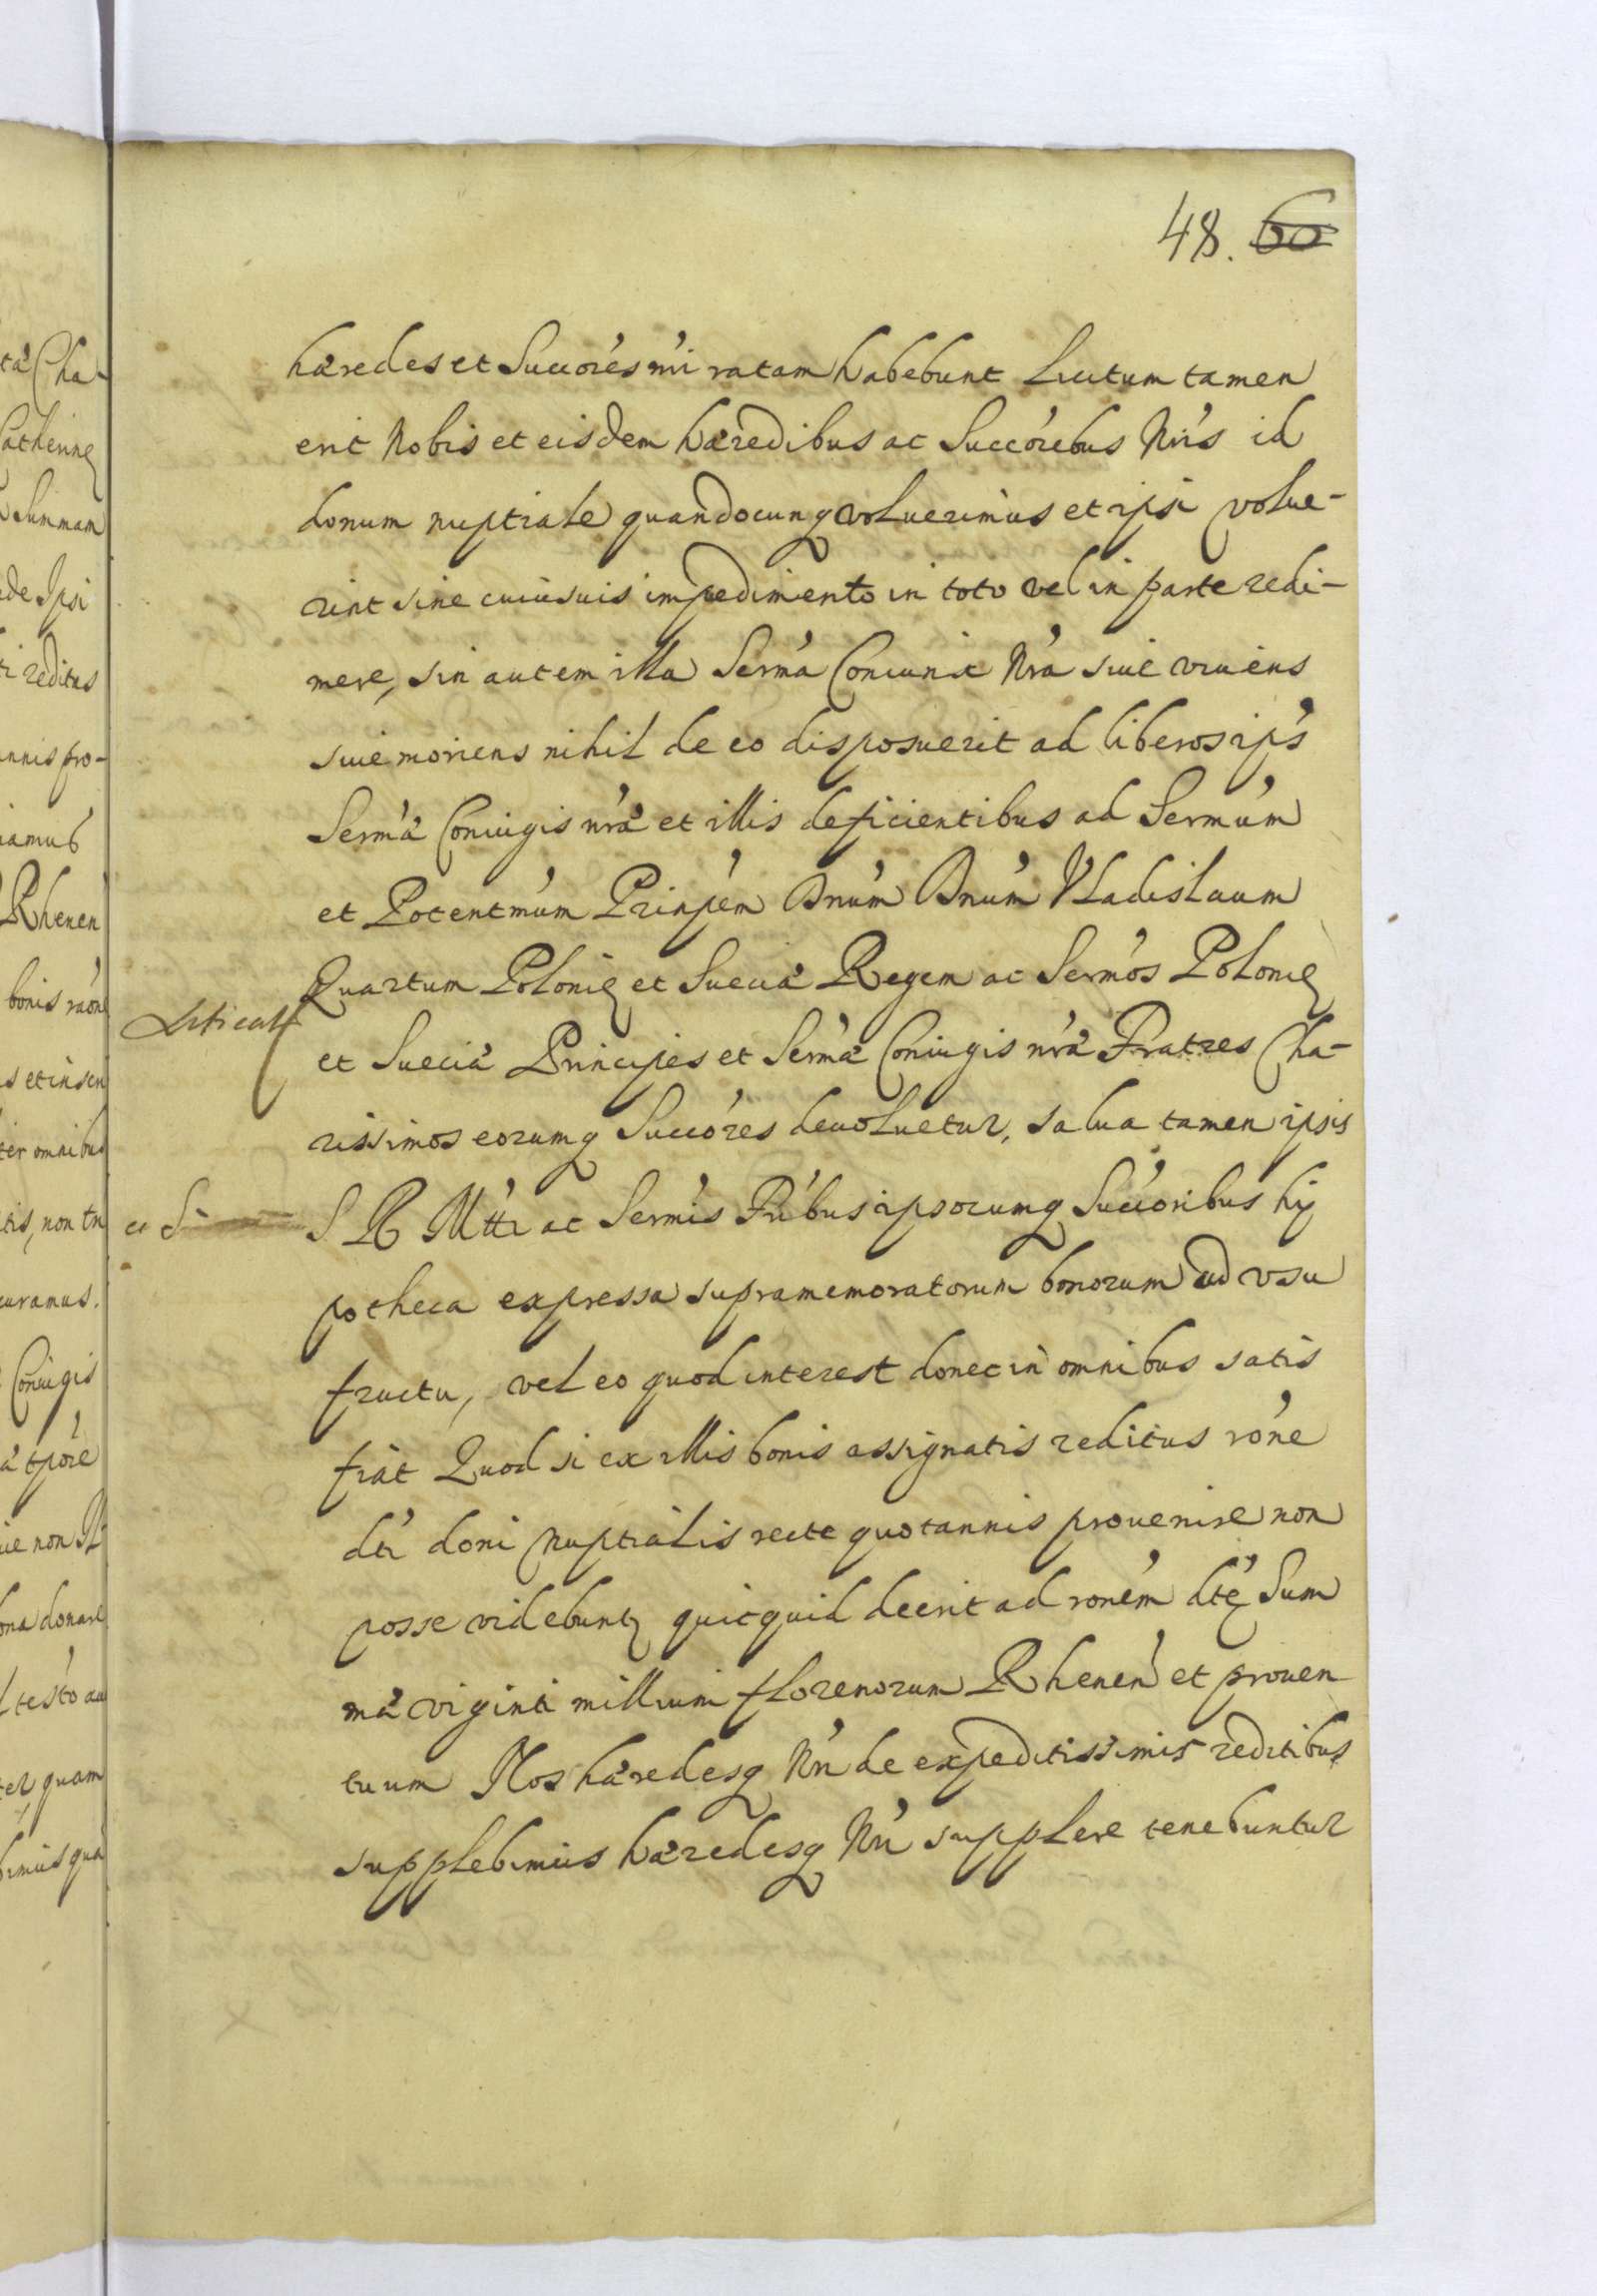 48. 60
hæredes et Succóres nri ratam habebunt Licitum tamen
erit Nobis et eisdem hæredibus ac Succórebus Nris id
donum nuptiale quandocunq voluerimus et ipsi volue-
rint sine cuiusuis impedimento in toto vel in parte redi-
mere, sin autem illa Serma Coniunx Nra siue viuens
siue moriens nihil de eo disposuerit ad liberos ips
Sermæ Coniugis nræ et illis deficientibus ad Sermum
et Potentmum Prinpem Dnum Dnum Vladislaum
Quartum Polonię et Sueciæ Regem ac Sermos Polonię
et Sueciæ Principes et Sermæ Coniugis nræ Fratres Cha-
rissimos eorumq Succóres deuoluetur, salua tamen ipsis
et S S R Mtti ac Sermis Fribus ipsorumq Succoribus hy
potheca expressa supramemoratorum bonorum ad vsu
fructu, vel eo quod interest donec in omnibus satis
fiat Quod si ex illis bonis assignatis reditus róne
dti doni nuptialis recte quotannis prouenire non
posse videbuntq quicquid deerit ad roném dtę Sum
mæ viginti millium florenorum Rhenen et prouen
tuum Nos hæredesq Nri de expeditissimis reditibus
supplebimus hæredesq Nri supplere tenebuntur
tæ Cha-
Catherinę
Summam
Ipsi
reditus
annis pro-
Rhenen
bonis raone
omnibus
non tn
curamus.
Coniugis
à tpóre
donare
quam